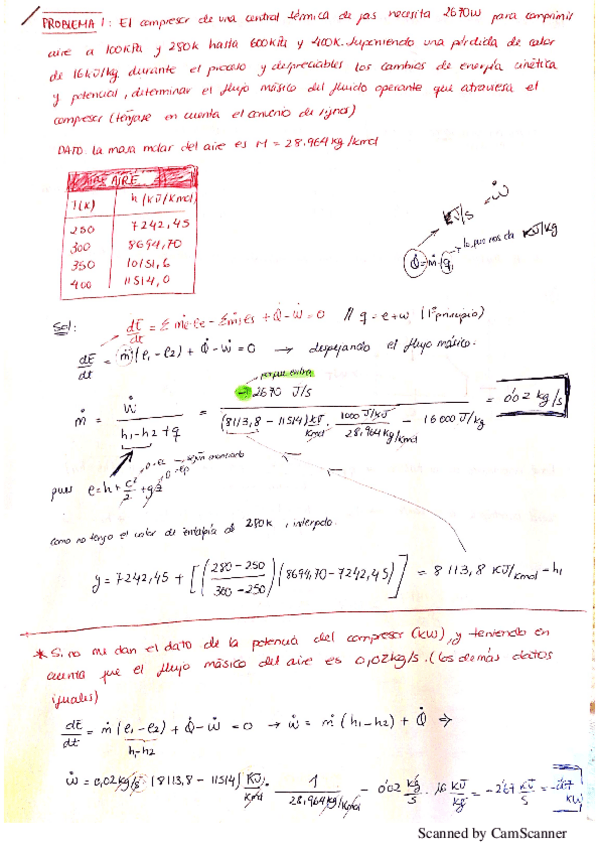 PROBLEMA 1: El compresor de una central térmica de gas necesita 2670W para comprimir
aire a 100KPa y 280K hasta 600KPa y 400K. Suponiendo una pérdida de calor
de 16KJ/kg durante el proceso y despreciables los cambios de energía cinética
y potencial, determinar el flujo másico del fluido operante que atraviesa el
compresor (téngase en cuenta el convenio de signos)
DATO la masa molar del aire es M = 28.964 kg/kmol
AIRE
T(K) h (KJ/Kmol)
250 7242,45
300 8694,70
350 10151,6
400 11514,0
KJ/s = Ẇ
Q̇ = ṁ·q → lo que nos da KJ/kg
Sol: dE/dt = Σ ṁe·ee - Σ ṁs·es + Q̇ - Ẇ = 0 // q = e+w (1º principio)
dE/dt = ṁ(e1 - e2) + Q̇ - Ẇ = 0 → despejando el flujo másico.
porque entra
ṁ = Ẇ / (h1-h2+q) = -2670 J/s / ((8113,8 - 11514) KJ/Kmol · 1000 J/KJ / 28.964 kg/Kmol - 16000 J/kg) = 0'02 kg/s
pues e = h + c²/2 + gz
como no tengo el valor de entalpía de 280K, interpolo.
y = 7242,45 + [((280-250)/(300-250)) (8694,70 - 7242,45)] = 8113,8 KJ/Kmol = h1
* Si no me dan el dato de la potencia del compresor (KW), y teniendo en
cuenta que el flujo másico del aire es 0,02kg/s. (los demás datos
iguales)
dE/dt = ṁ(e1 - e2) + Q̇ - Ẇ = 0 → Ẇ = ṁ(h1-h2) + Q̇ ⇒
h1-h2
Ẇ = 0,02 kg/s (8113,8 - 11514) KJ/Kmol · 1/28.964 kg/Kmol - 0'02 kg/s · 16 KJ/kg = -2'67 KJ/s = -2'67 KW
Scanned by CamScanner